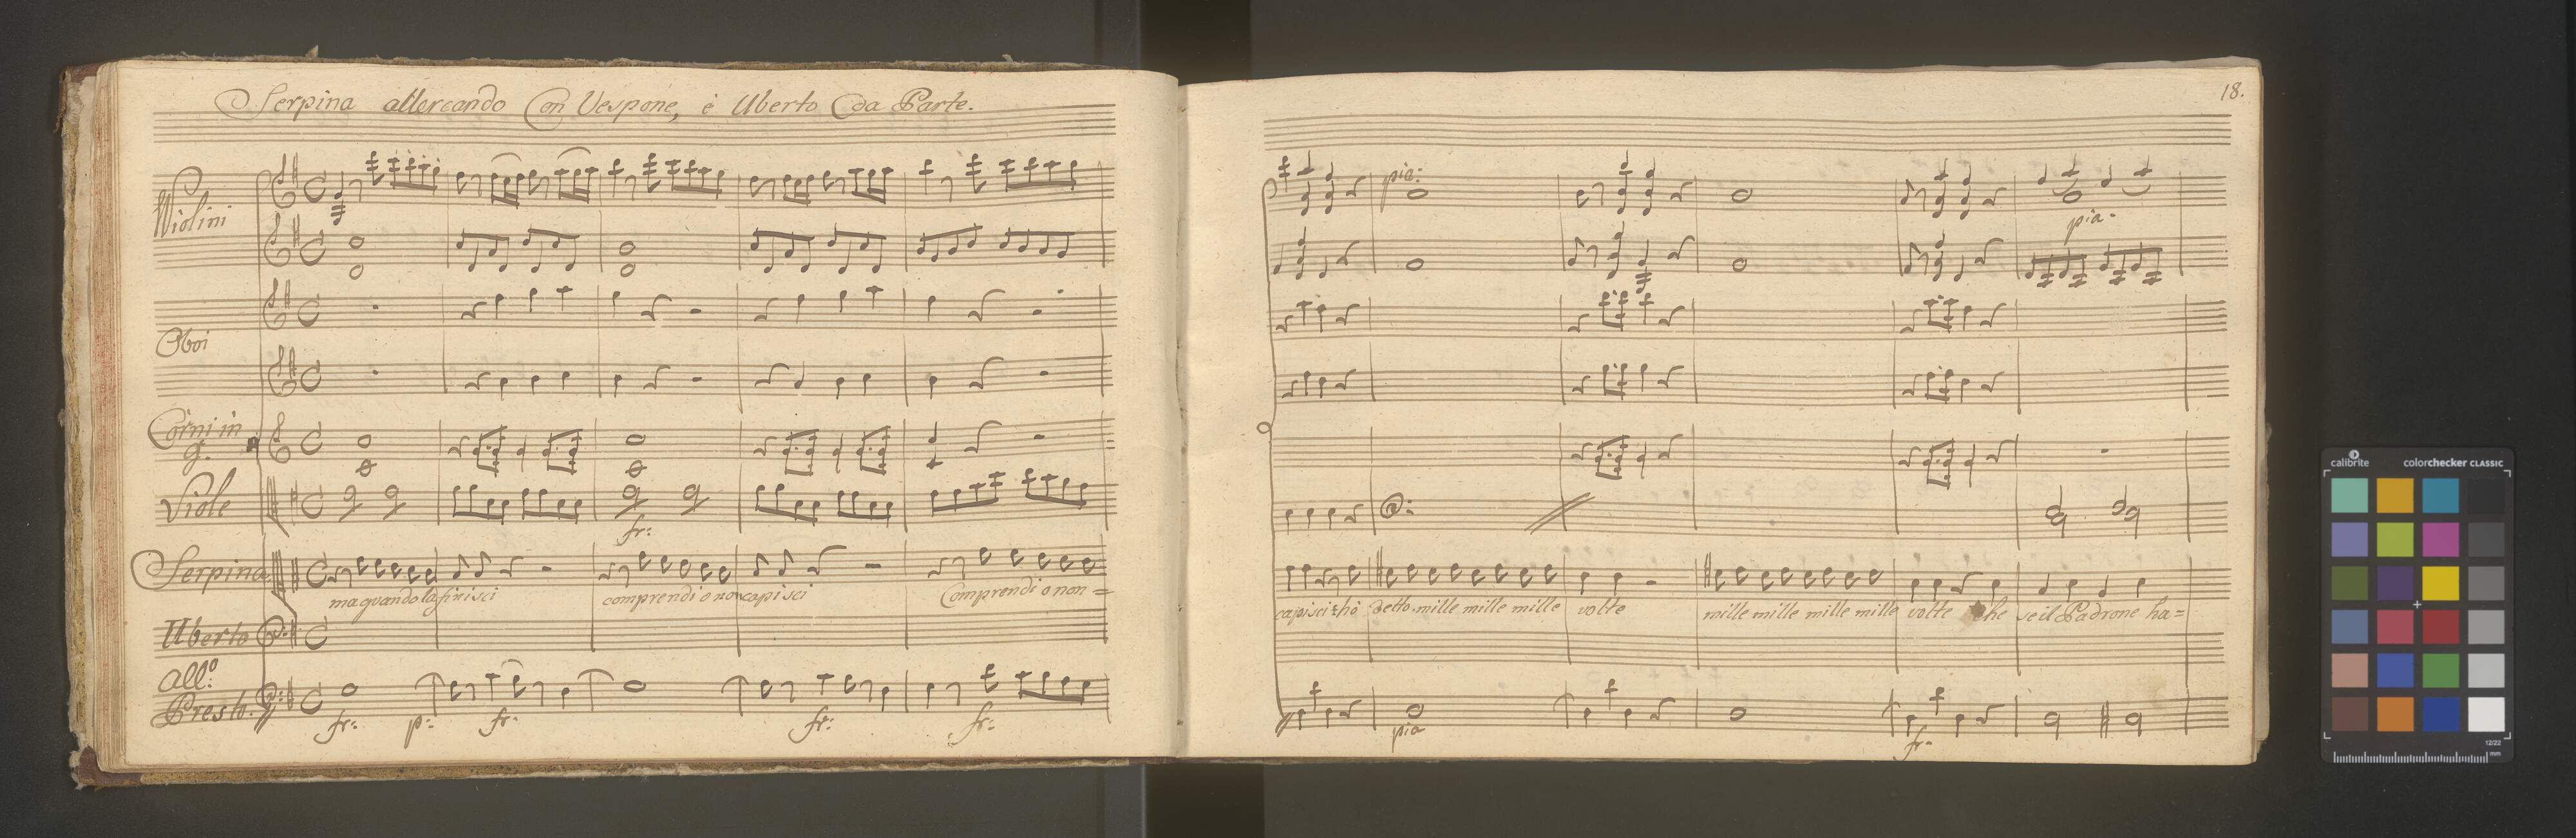 Serpina altercando Con Vespone, è Uberto Da Parte.
Violini
Oboi
Corni in
g.
Viole
fr:
Serpina
ma quando la finisci comprendi o non capisci Comprendi o non =
Uberto
All:º
Presto.
fr: p: fr: fr: fr:
18.
pia:
pia.
capisci: hò detto mille mille mille volte mille mille mille mille volte che se il Padrone ha=
pia fr.
calibrite colorchecker CLASSIC
12/22
mm